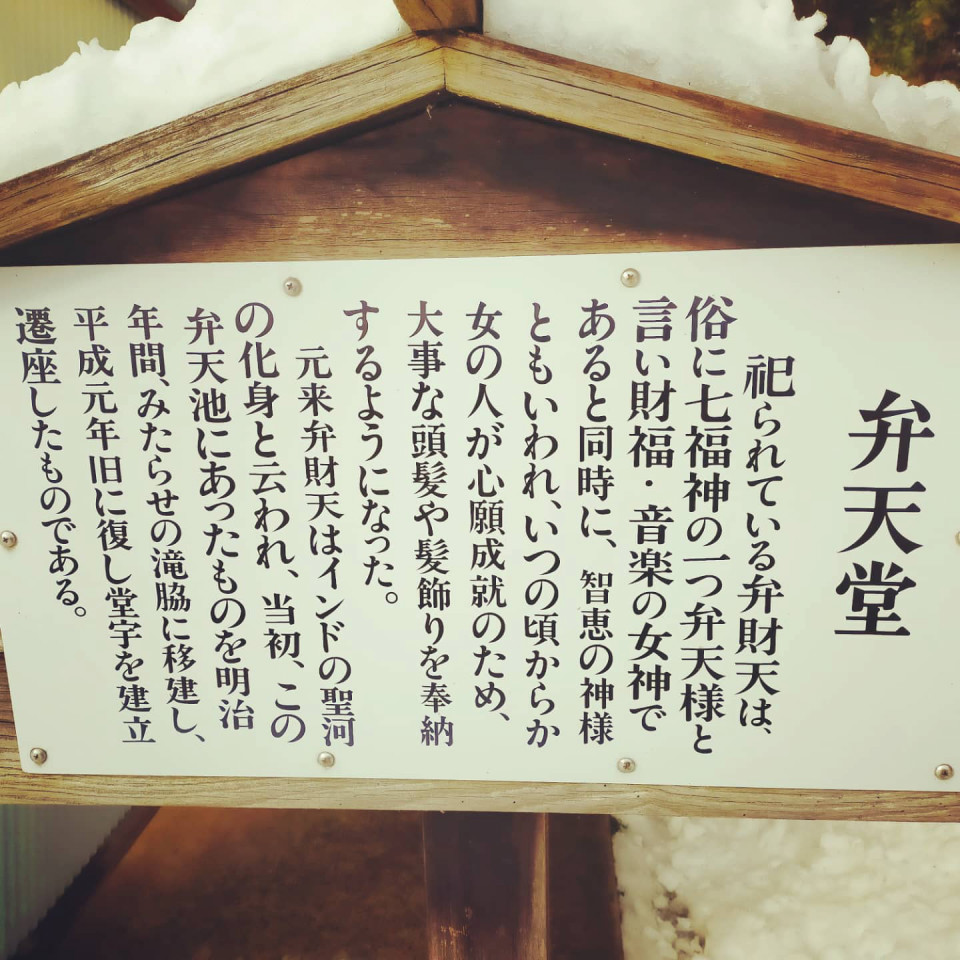 弁天堂
祀られている弁財天は、
俗に七福神の一つ弁天様と
言い財福・音楽の女神で
あると同時に、智恵の神様
ともいわれ、いつの頃からか
女の人が心願成就のため、
大事な頭髪や髪飾りを奉納
するようになった。
元来弁財天はインドの聖河
の化身と云われ、当初、この
弁天池にあったものを明治
年間、みたらせの滝脇に移建し、
平成元年旧に復し堂宇を建立
遷座したものである。